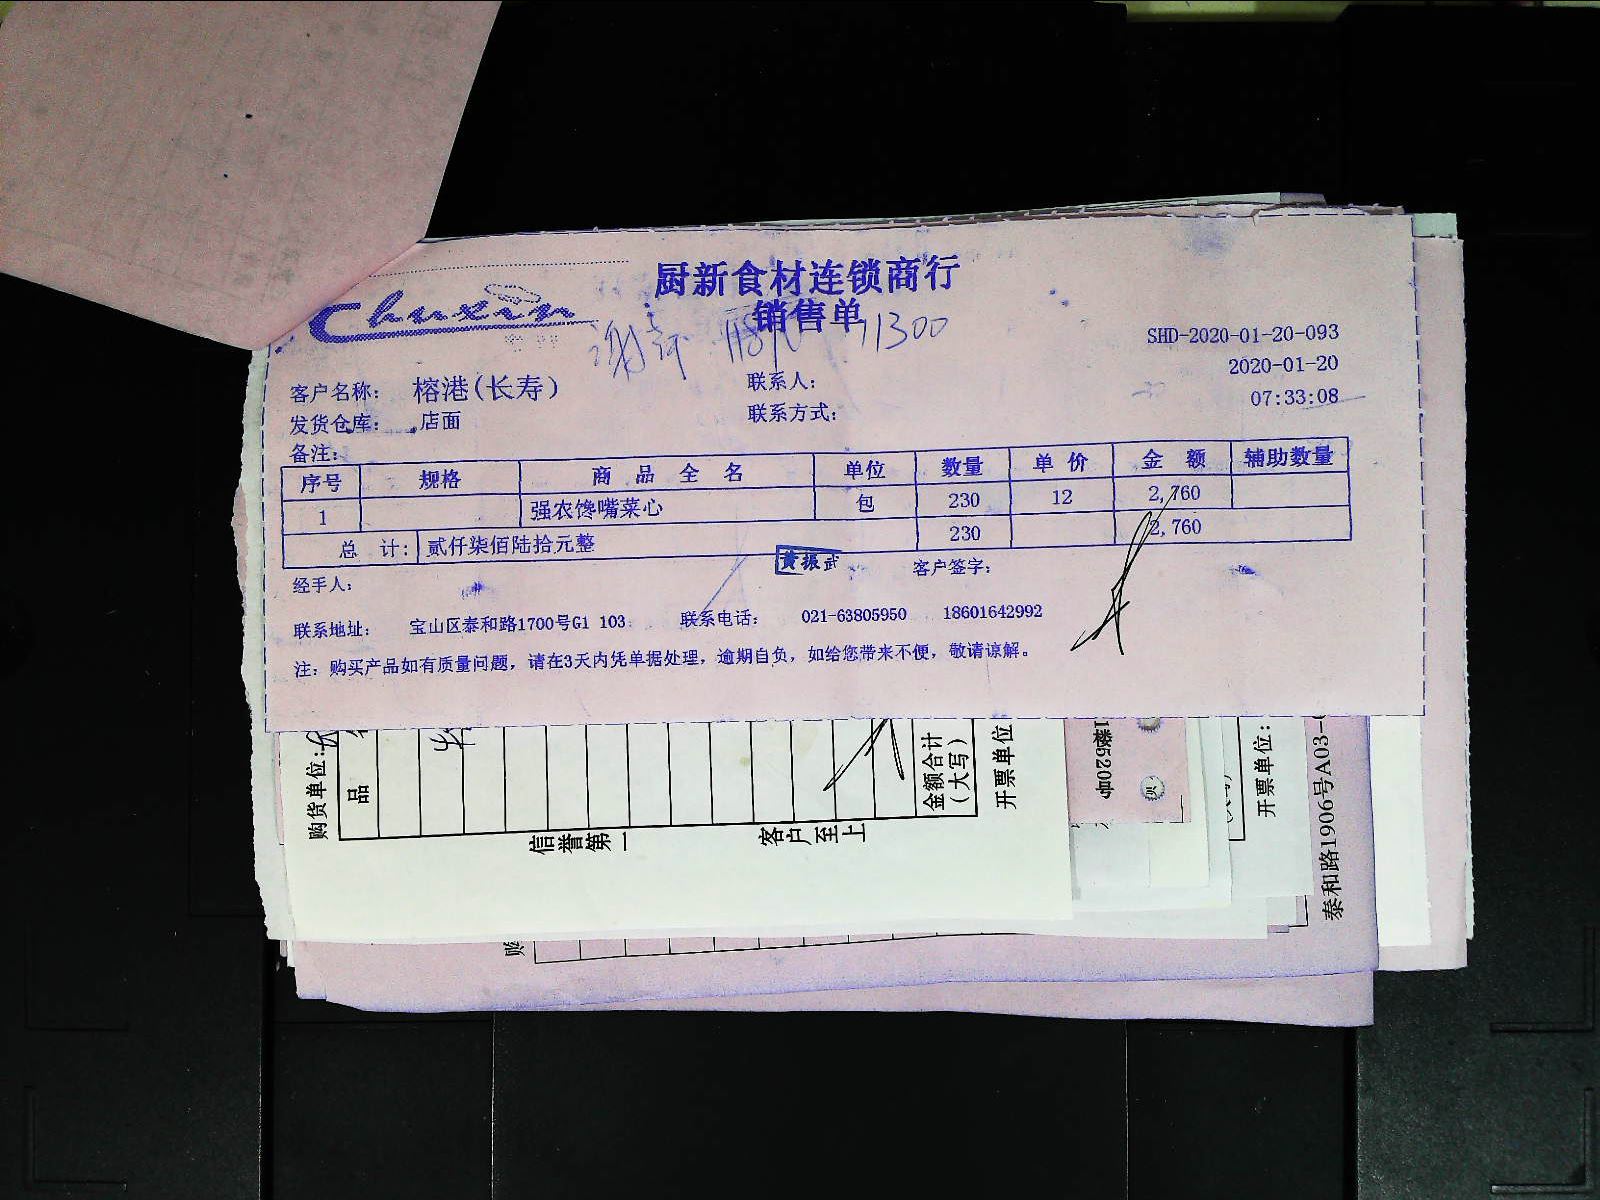 厨新食材连锁商行
Chuxin
销售单
11300
SHD-2020-01-20-093
2020-01-20
客户名称： 榕港(长寿) 联系人：
07:33:08
发货仓库： 店面 联系方式：
备注：
序号 规格 商品全名 单位 数量 单价 金额 辅助数量
1 强农馋嘴菜心 包 230 12 2,760
总计： 贰仟柒佰陆拾元整 230 2,760
经手人： 黄振武 客户签字：
联系地址： 宝山区泰和路1700号G1 103 联系电话： 021-63805950 18601642992
注：购买产品如有质量问题，请在3天内凭单据处理，逾期自负，如给您带来不便，敬请谅解。
购货单位：
品
金额合计
(大写)
开票单位
信誉第一 客户至上
开票单位：
泰和路1906号A03-